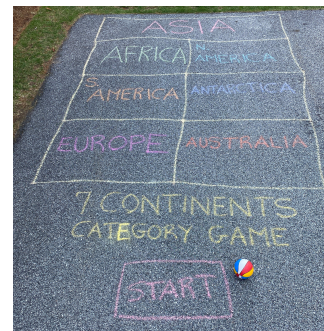 ASIA
AFRICA
N.
AMERICA
S.
AMERICA
ANTARCTICA
EUROPE
AUSTRALIA
7 CONTINENTS
CATEGORY GAME
START